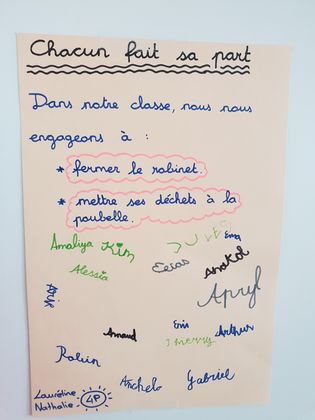 Chacun fait sa part
Dans notre classe, nous nous
engageons à :
* fermer le robinet.
* mettre ses déchets à la
poubelle.
Amaliya Kim
Alessia
Anatol
Apryl
Arnaud
Enis
Thierry
Arthur
Robin
Archelo
Gabriel
Lauréline
Nathalie
4P